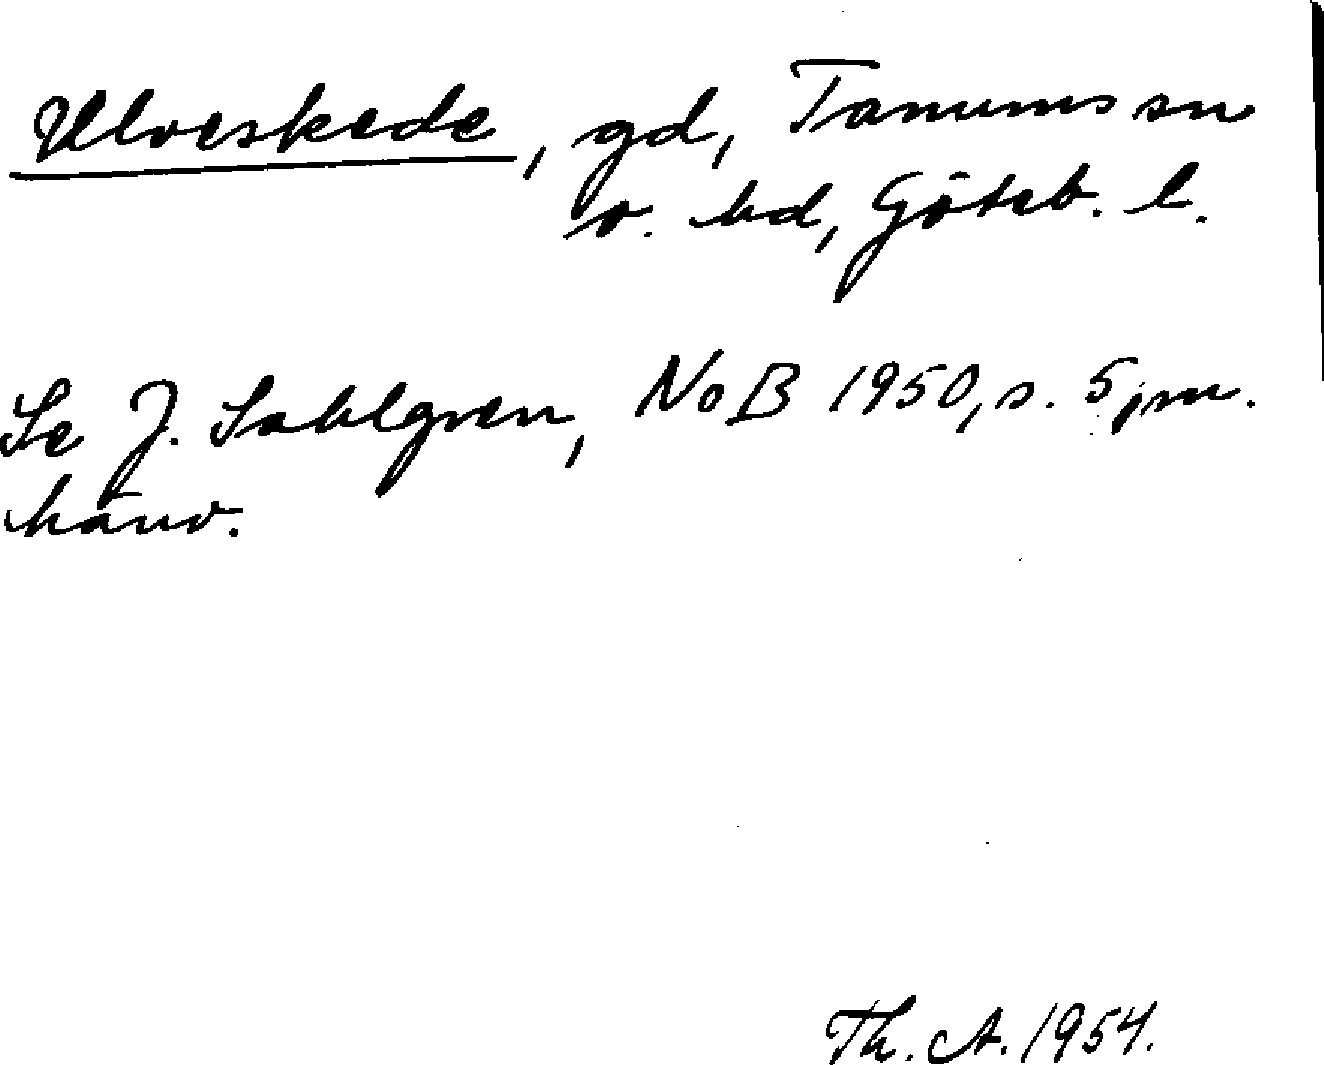 Ulveskede, gd, Tanums sn
o. hd, Göteb. l.
Se J. Sahlgren, NoB 1950, s. 5, m.
hänv.
Th. A. 1954.